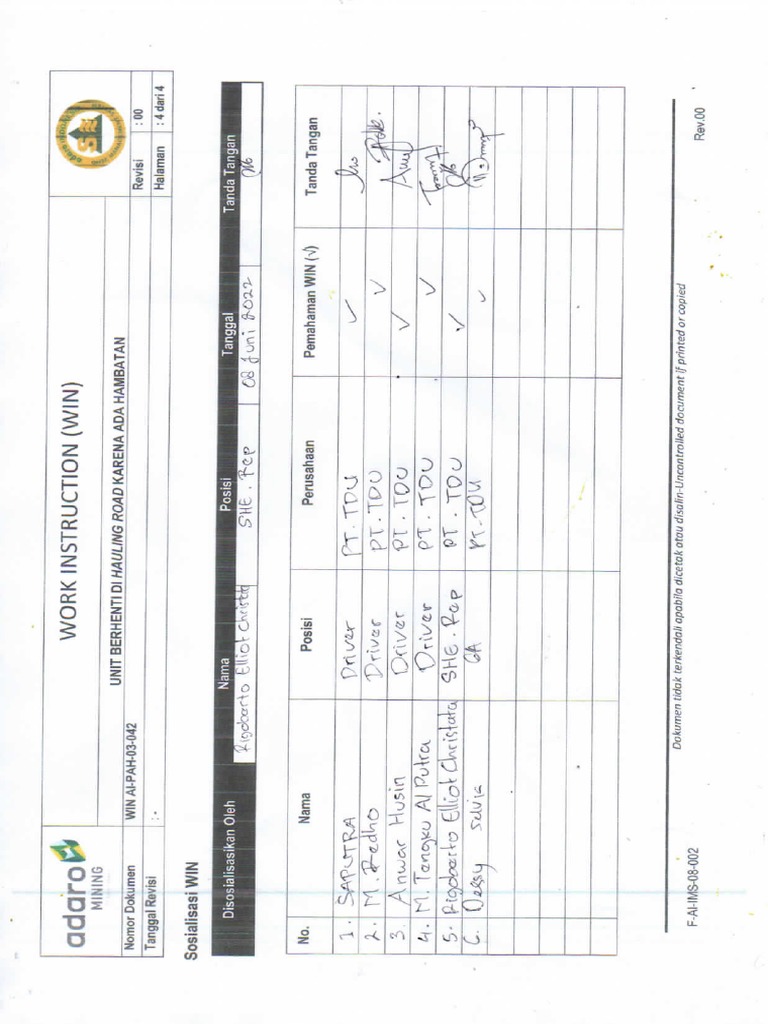 adaro
MINING
WORK INSTRUCTION (WIN)
UNIT BERHENTI DI HAULING ROAD KARENA ADA HAMBATAN
Nomor Dokumen WIN AI-PAH-03-042 Revisi : 00
Tanggal Revisi : - Halaman : 4 dari 4
Sosialisasi WIN
Disosialisasikan Oleh Nama Posisi Tanggal Tanda Tangan
Rigobarto Elliot Christata SHE . Rep 08 Juni 2022
No. Nama Posisi Perusahaan Pemahaman WIN (√) Tanda Tangan
1. SAPUTRA Driver PT. TDU ✓
2. M. Redho Driver PT. TDU ✓
3. Anwar Husin Driver PT. TDU ✓
4. M. Tengku Al Putra Driver PT. TDU ✓
5. Rigobarto Elliot Christata SHE . Rep PT. TDU ✓
6. Dessy Selvia GA PT. TDU ✓
Dokumen tidak terkendali apabila dicetak atau disalin-Uncontrolled document if printed or copied
F-AI-IMS-08-002 Rev.00